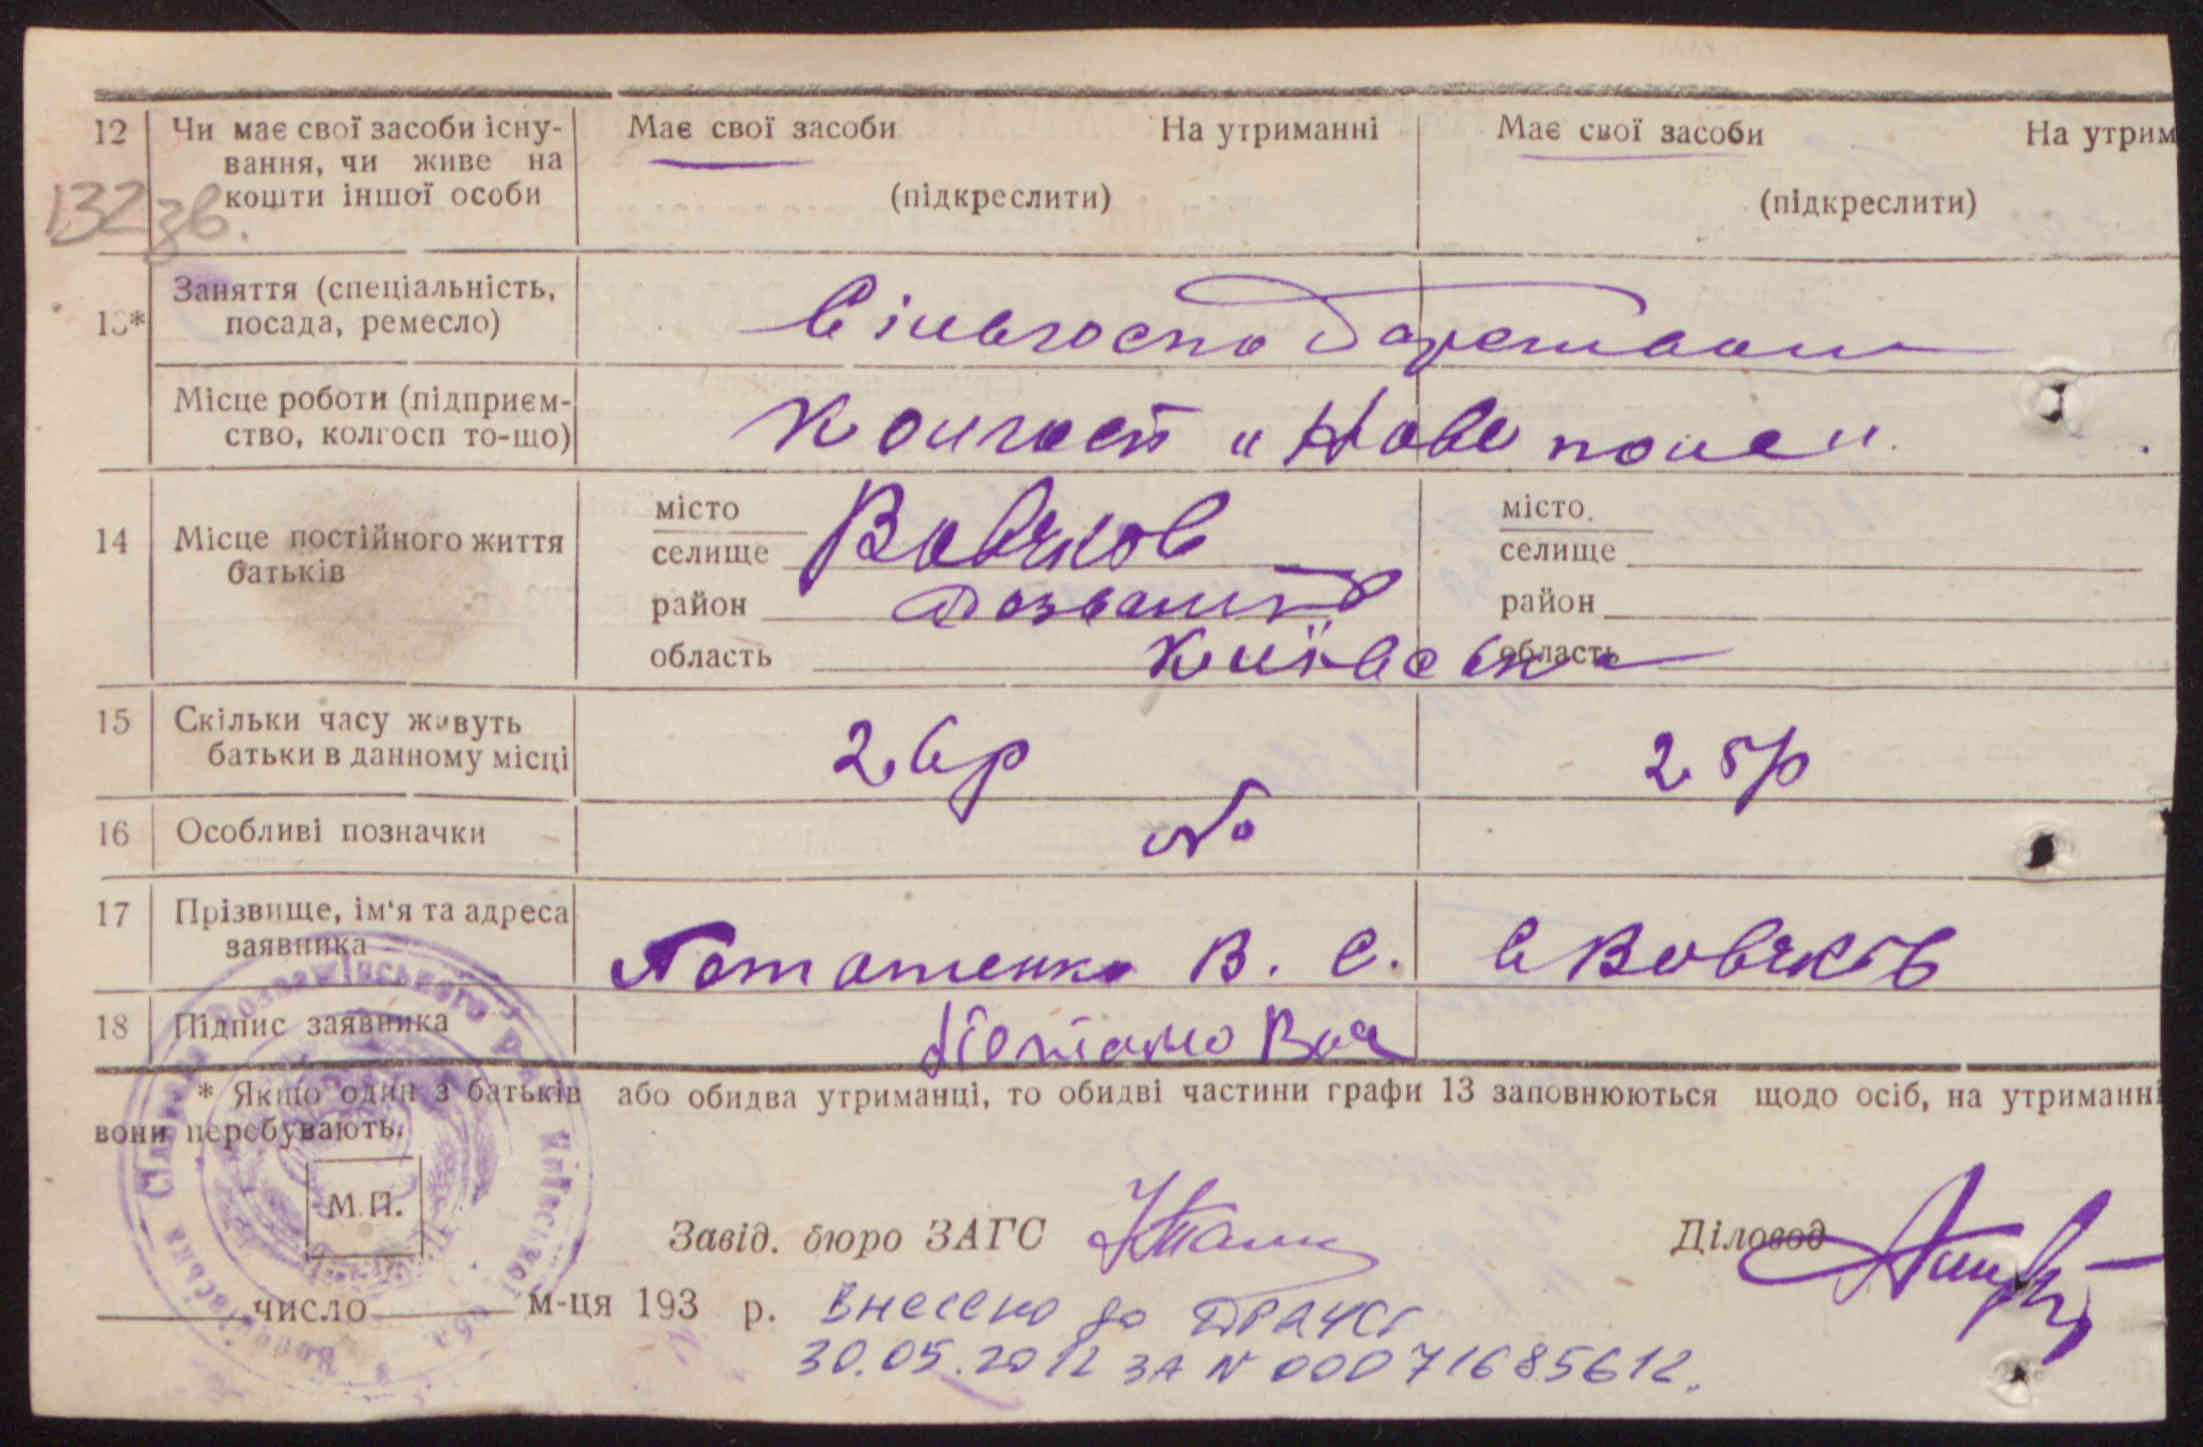 12 Чи має свої засоби існу- Має свої засоби На утриманні Має свої засоби На утрим
вання, чи живе на
132 зв. кошти іншої особи (підкреслити) (підкреслити)
13* Заняття (спеціальність,
посада, ремесло)
Місце роботи (підприєм- Колгосп "Нове поле".
ство, колгосп то-що)
14 Місце постійного життя
батьків
місто Вовчков місто
селище селище
район Розважів район
область Київська область
15 Скільки часу живуть 26р 25р
батьки в данному місці
16 Особливі позначки
17 Прізвище, ім'я та адреса
заявника Потапенко В. С. с Вовчків
18 Підпис заявника
* Якщо один з батьків або обидва утриманці, то обидві частини графи 13 заповнюються щодо осіб, на утриманні
вони перебувають.
М.П.
Завід. бюро ЗАГС Діловод
число м-ця 193 р. Внесено до ДРАЦСг
30.05.2012 за N 00071685612.